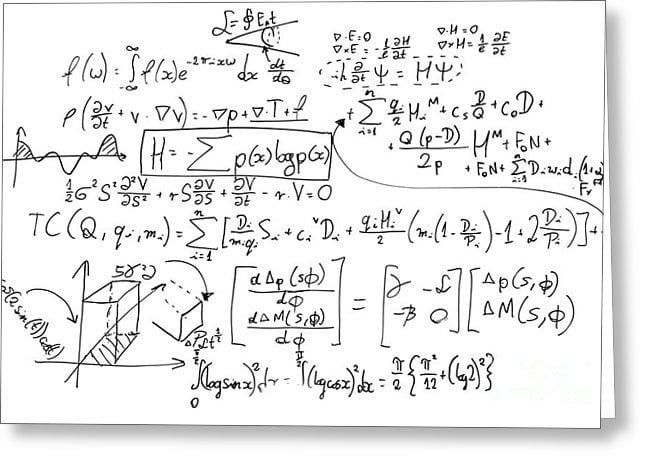 L = ∮E₀t
f(ω) = ∫_{-∞}^{∞} f(x)e^{-2πixω} dx dt/dθ
∇·E=0 ∇·H=0
∇×E = -1/c ∂H/∂t ∇×H = 1/c ∂E/∂t
iħ ∂/∂t Ψ = HΨ
ρ(∂v/∂t + v·∇v) = -∇p + ∇·T + f
+ ∑_{i=1}^{n} q_i/2 H_i^M + c_s D/Q + c_0 D +
H = -∑ p(x) log p(x)
+ Q(p-D)/2p H^M + F_0N +
+ F_0N + ∑_{i=1}^{n} D_i w_i d_i
1/2 σ² S² ∂²V/∂S² + rS ∂V/∂S + ∂V/∂t - r·V = 0
TC(Q, q_i, m_i) = ∑_{i=1}^{n} [D_i/(m_i q_i) S_i + c_i^v D_i + q_i H_i^v/2 (m_i(1 - D_i/P_i) - 1 + 2 D_i/P_i)] +
5γ²2
[dΔp(s,ϕ)/dϕ dΔM(s,ϕ)/dϕ] = [γ -L -β 0] [Δp(s,ϕ) ΔM(s,ϕ)]
∫_0^{π/2} (log sin x)² dx = ∫^{π/2} (log cos x)² dx = π/2 {π²/12 + (log 2)²}